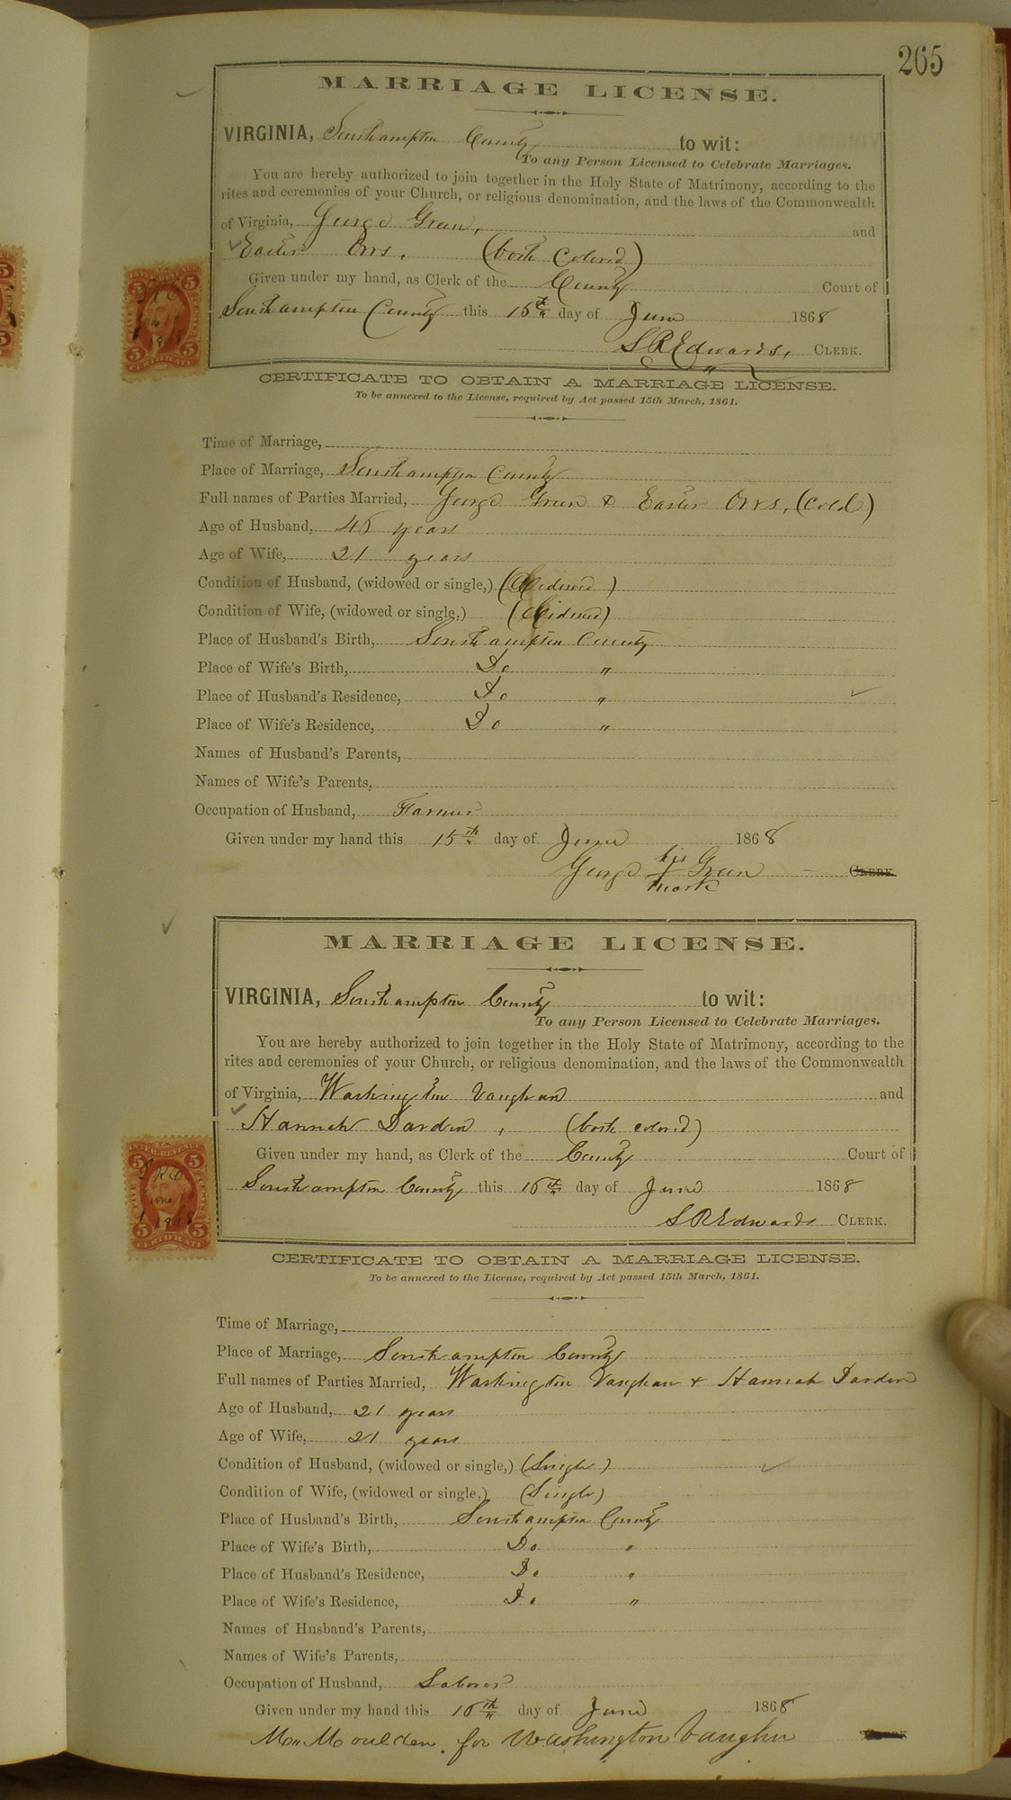 265
MARRIAGE LICENSE.
VIRGINIA, Southampton County to wit:
To any Person Licensed to Celebrate Marriages.
You are hereby authorized to join together in the Holy State of Matrimony, according to the
rites and ceremonies of your Church, or religious denomination, and the laws of the Commonwealth
of Virginia, George Green, and
Easter Orrs, (both Colored)
Given under my hand, as Clerk of the County Court of
Southampton County this 15th day of June 1868
S R Edwards, CLERK.
CERTIFICATE TO OBTAIN A MARRIAGE LICENSE.
To be annexed to the License, required by Act passed 15th March, 1861.
Time of Marriage,
Place of Marriage, Southampton County
Full names of Parties Married, George Green & Easter Orrs, (Cold)
Age of Husband, 45 years
Age of Wife, 21 years
Condition of Husband, (widowed or single,) (Widowed)
Condition of Wife, (widowed or single,) (Widowed)
Place of Husband's Birth, Southampton County
Place of Wife's Birth, Do "
Place of Husband's Residence, Do "
Place of Wife's Residence, Do "
Names of Husband's Parents,
Names of Wife's Parents,
Occupation of Husband, Farmer
Given under my hand this 15th day of June 1868
George his Green CLERK
mark
MARRIAGE LICENSE.
VIRGINIA, Southampton County to wit:
To any Person Licensed to Celebrate Marriages.
You are hereby authorized to join together in the Holy State of Matrimony, according to the
rites and ceremonies of your Church, or religious denomination, and the laws of the Commonwealth
of Virginia, Washington Vaughan and
Hannah Darden, (both colored)
Given under my hand, as Clerk of the County Court of
Southampton County this 16th day of June 1868
S R Edwards CLERK.
CERTIFICATE TO OBTAIN A MARRIAGE LICENSE.
To be annexed to the License, required by Act passed 15th March, 1861.
Time of Marriage,
Place of Marriage, Southampton County
Full names of Parties Married, Washington Vaughan & Hannah Darden
Age of Husband, 21 years
Age of Wife, 21 years
Condition of Husband, (widowed or single,) (Single)
Condition of Wife, (widowed or single,) (Single)
Place of Husband's Birth, Southampton County
Place of Wife's Birth, Do "
Place of Husband's Residence, Do "
Place of Wife's Residence, Do "
Names of Husband's Parents,
Names of Wife's Parents,
Occupation of Husband, Laborer
Given under my hand this 16th day of June 1868
Moulden for Washington Vaughn